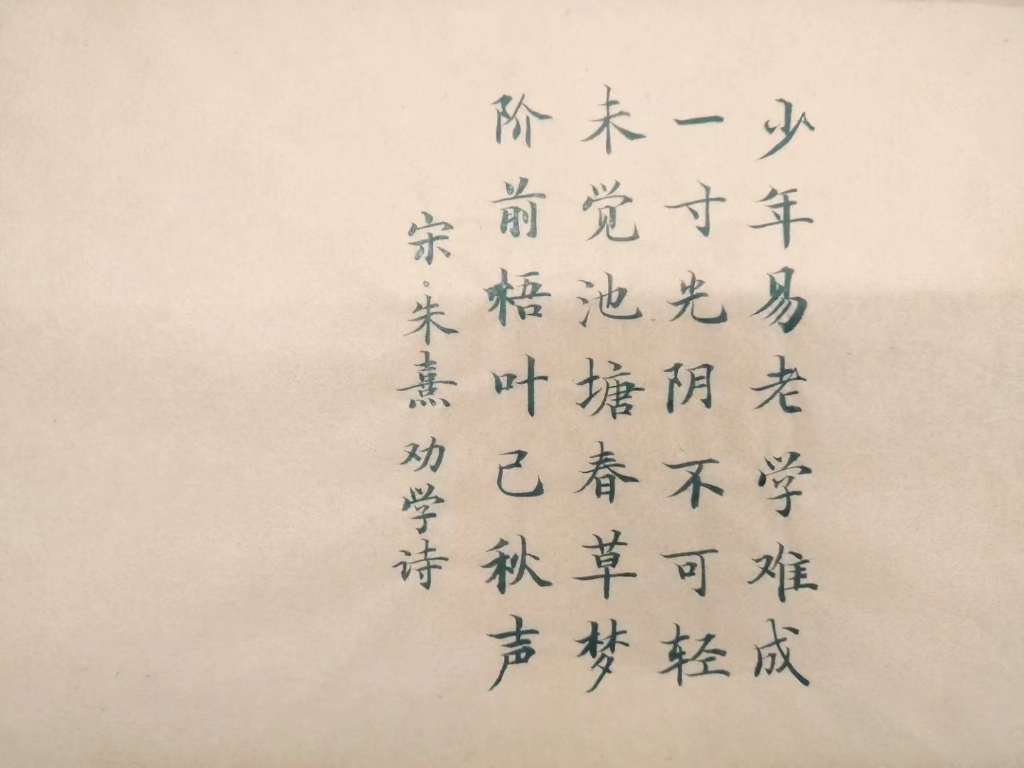 少年易老学难成
一寸光阴不可轻
未觉池塘春草梦
阶前梧叶已秋声
宋·朱熹 劝学诗